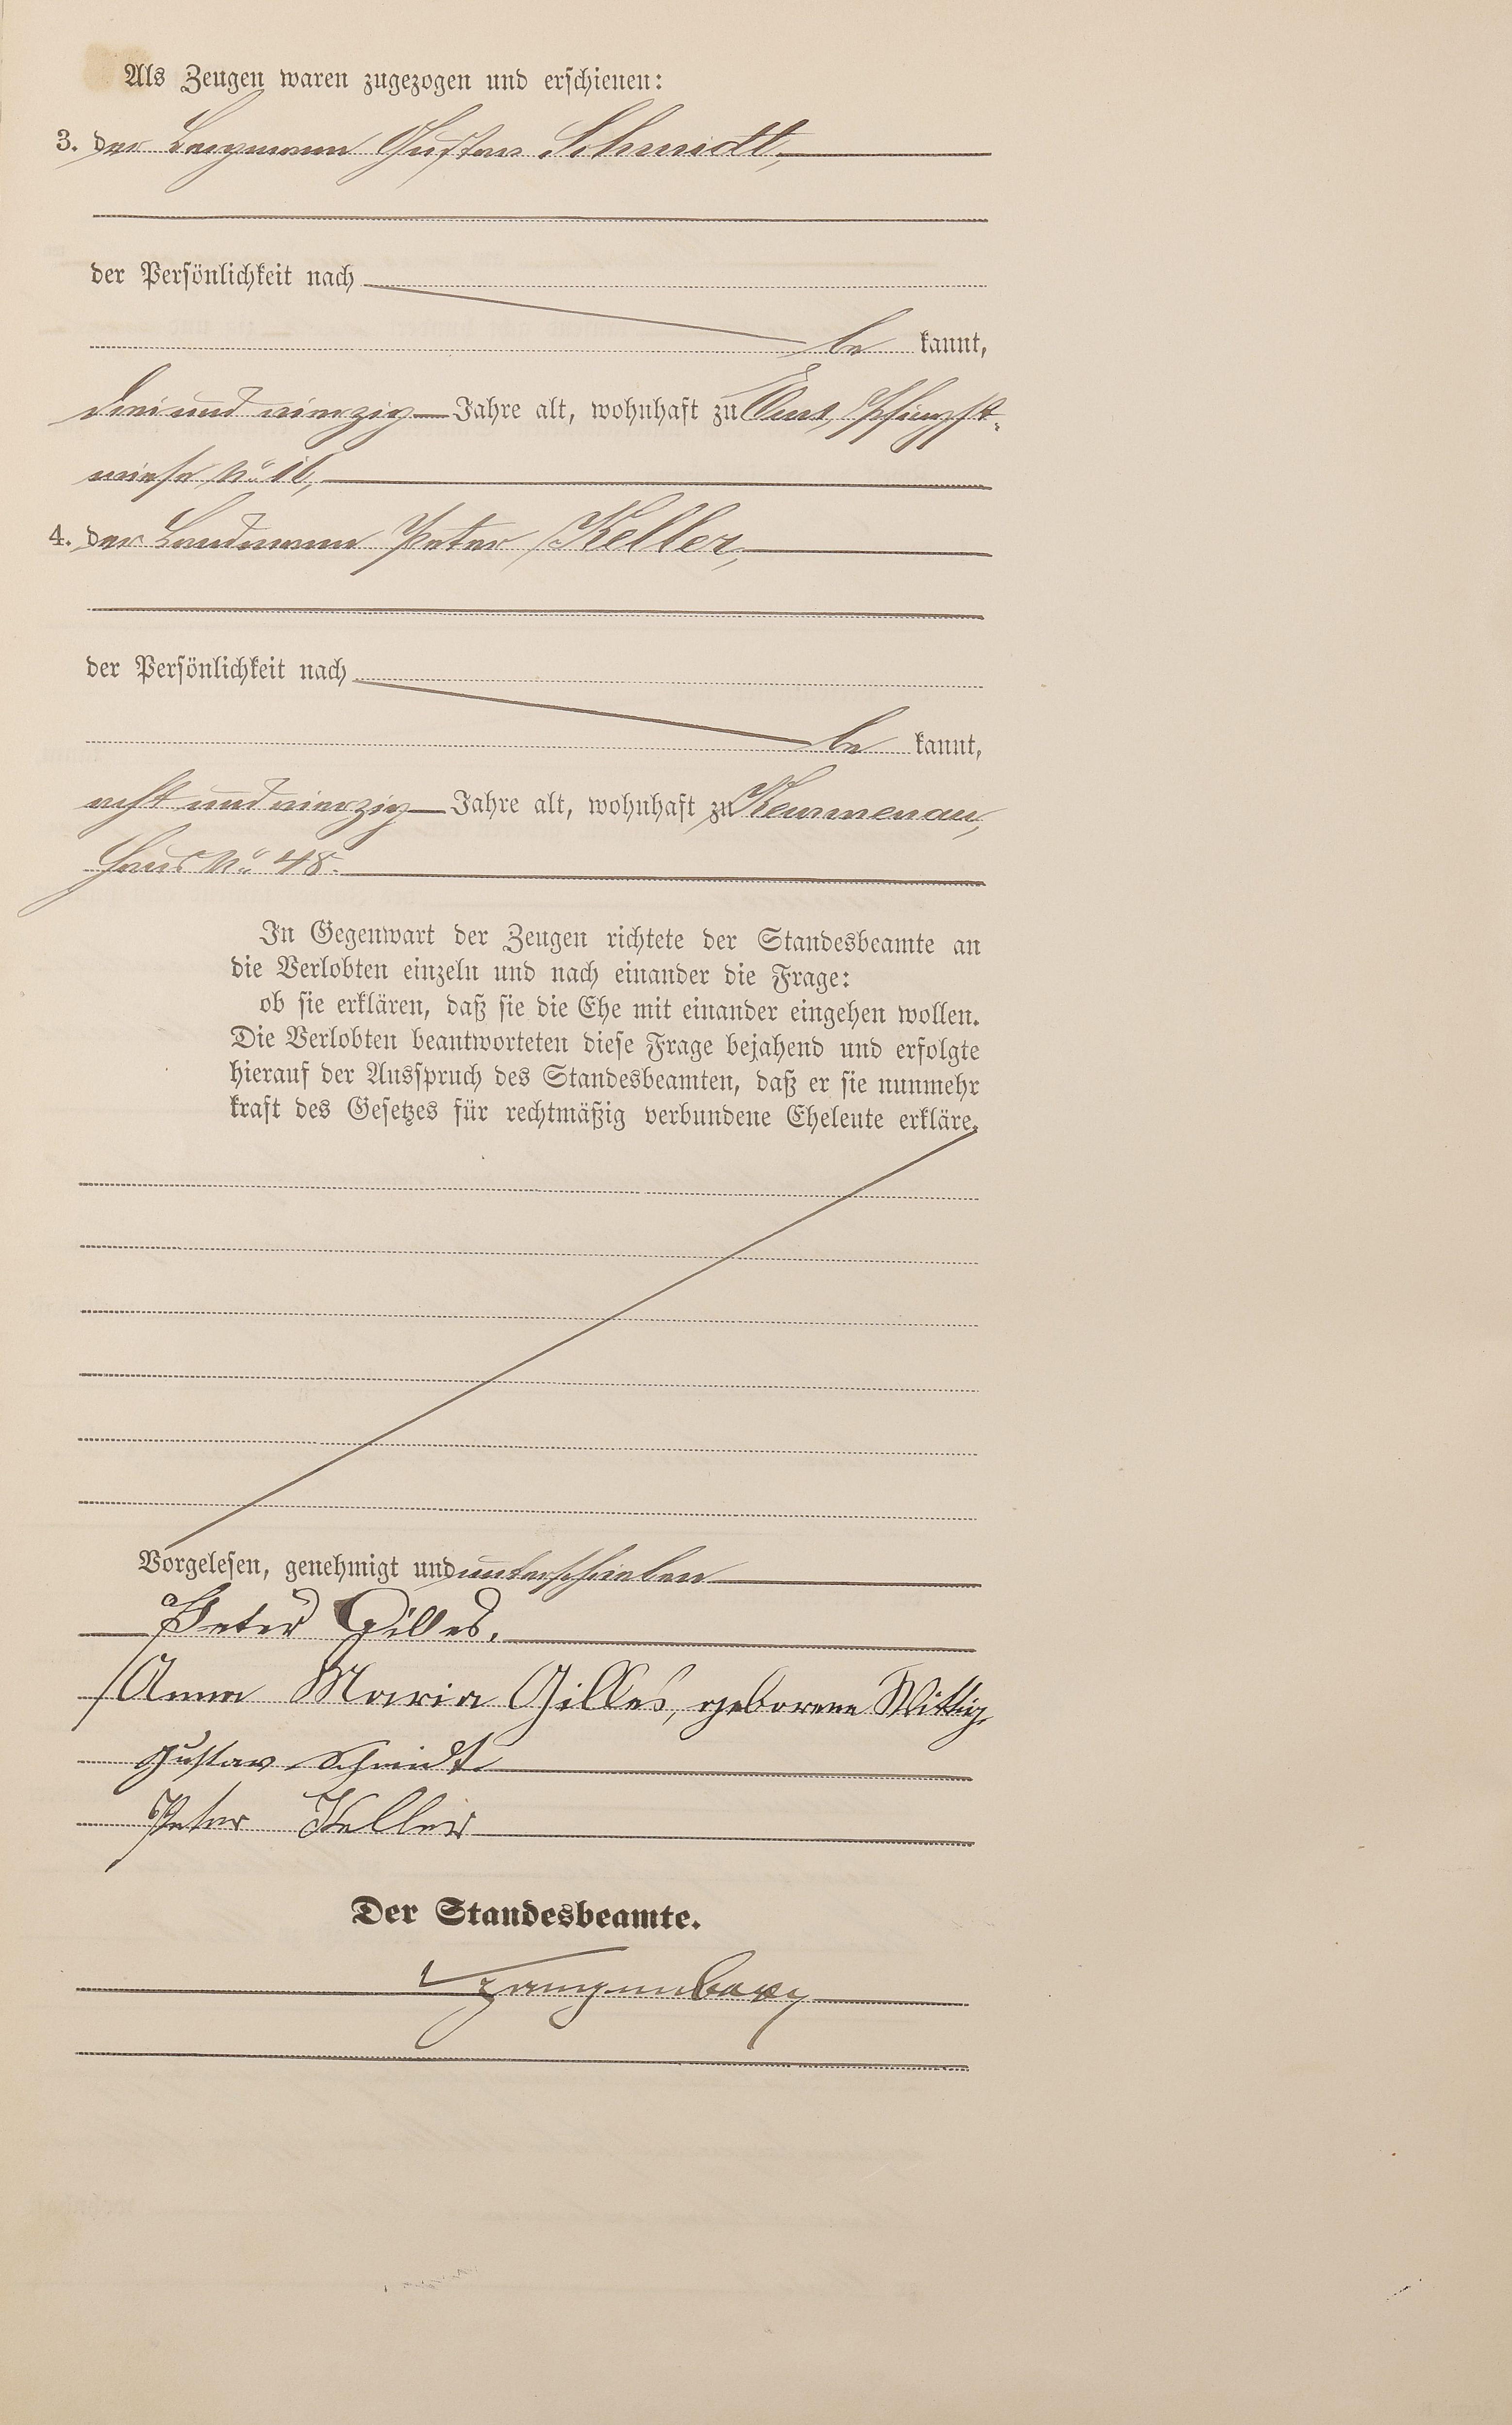 Als Zeugen waren zugezogen und erschienen:
3. der Bergmann Gustav Schmidt,
der Persönlichkeit nach
be kannt,
drei und vierzig Jahre alt, wohnhaft zu Ems, Pfingst-
wiese No 16,
4. der Landmann Peter Keller,
der Persönlichkeit nach
be kannt,
acht und vierzig Jahre alt, wohnhaft zu Kemmenau,
Haus No 48.
In Gegenwart der Zeugen richtete der Standesbeamte an
die Verlobten einzeln und nach einander die Frage:
ob sie erklären, daß sie die Ehe mit einander eingehen wollen.
Die Verlobten beantworteten diese Frage bejahend und erfolgte
hierauf der Ausspruch des Standesbeamten, daß er sie nunmehr
kraft des Gesetzes für rechtmäßig verbundene Eheleute erkläre.
Vorgelesen, genehmigt und unterschrieben
Peter Gilles.
Anna Maria Gilles, geborene Wittig.
Gustav Schmidt
Peter Keller
Der Standesbeamte.